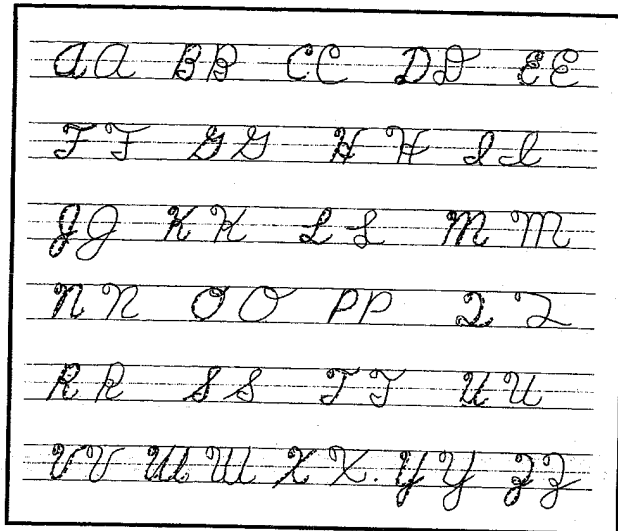 A A B B C C D D E E
F F G G H H I I
J J K K L L M M
N N O O P P Q Q
R R S S T T U U
V V W W X X. Y Y Z Z